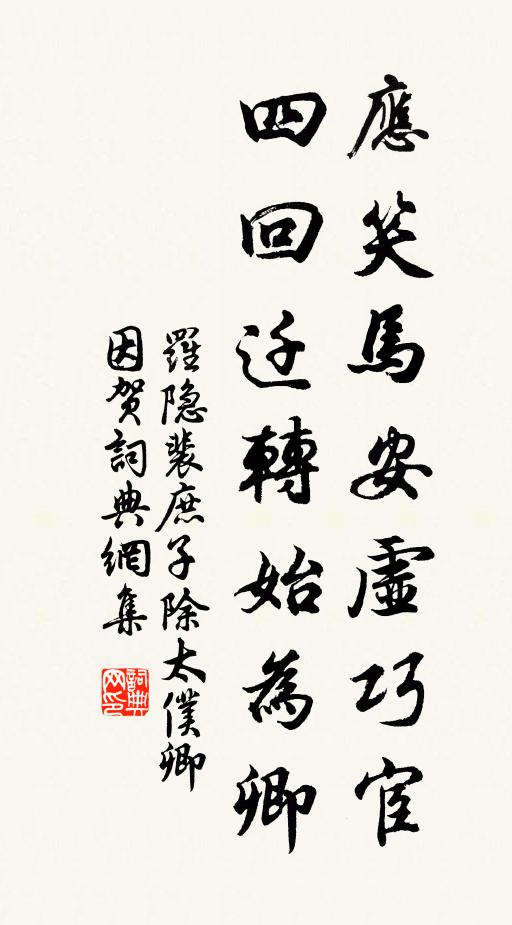 應笑馬安虛巧宦
四回迁轉始為卿
羅隐裴庶子除太僕卿
因贺詞典網集
詞典
网印